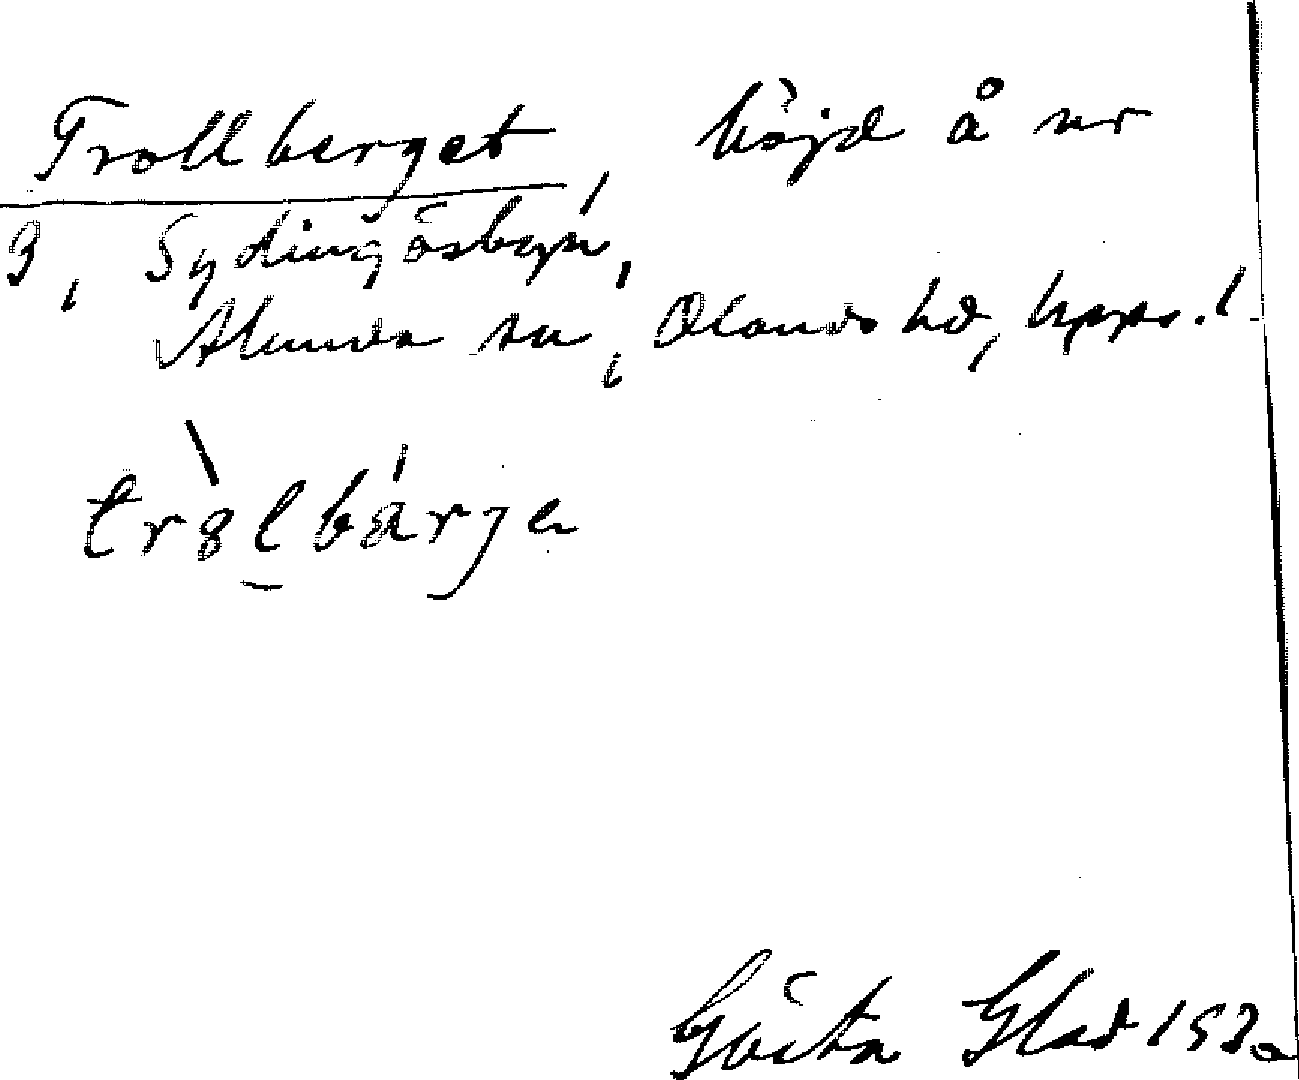 Trollberget, höjd å nr
3, Sydingösbyn,
Alunda sn, Olands hd, Upps. l
tròlbárje
Gösta Glad 1930